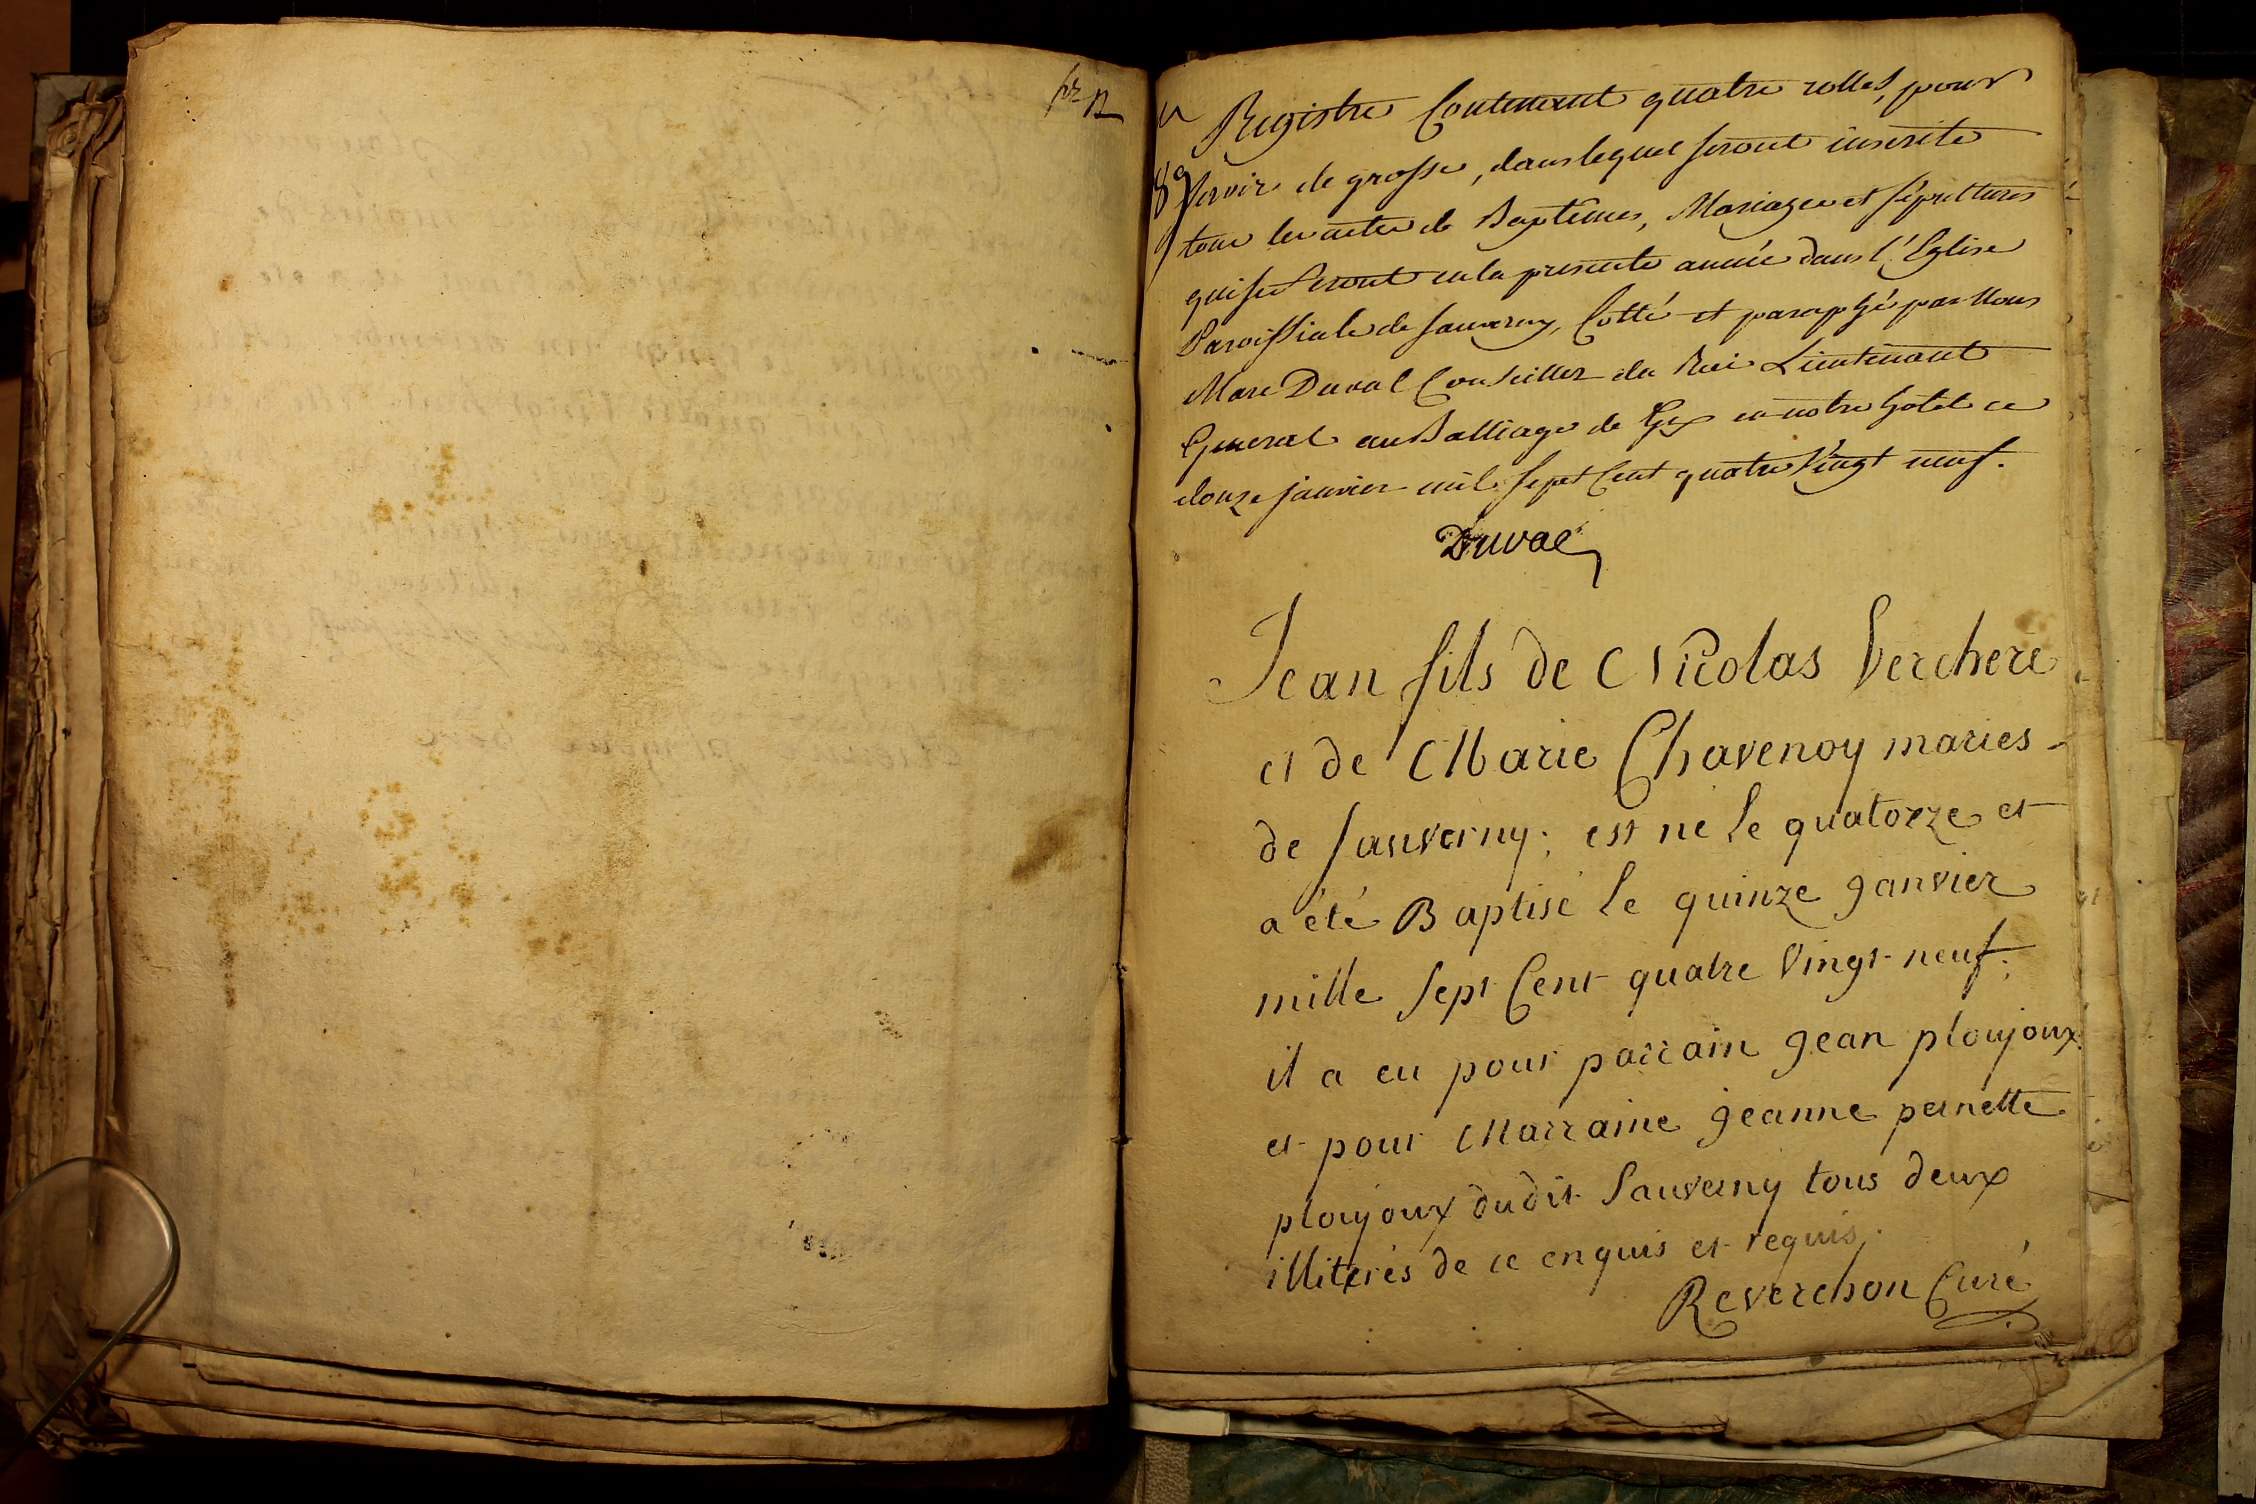 Registre Contenant quatre rolles, pour
89
servir de grosse, dans lequel seront inscrits
tous les actes de Baptêmes, Mariages et sépultures
qui se feront en la presente année dans l'Eglise
Paroissiale de Sauverny, Cotté et paraphé par Nous
Marc Duval Conseiller du Roi Lieutenant
General au Balliage de Gex en notre hotel ce
douze janvier mil sept Cent quatre Vingt neuf.
Duval
Jean fils de Nicolas Verchere
et de Marie Chavenoy maries
de Sauverny; est né le quatorze et
a été Baptisé le quinze janvier
mille Sept Cent quatre Vingt neuf;
il a eu pour parrain jean ploujoux
et pour Marraine jeanne pernette
ploujoux dudit Sauverny tous deux
illiterés de ce enquis et requis.
Reverchon Curé